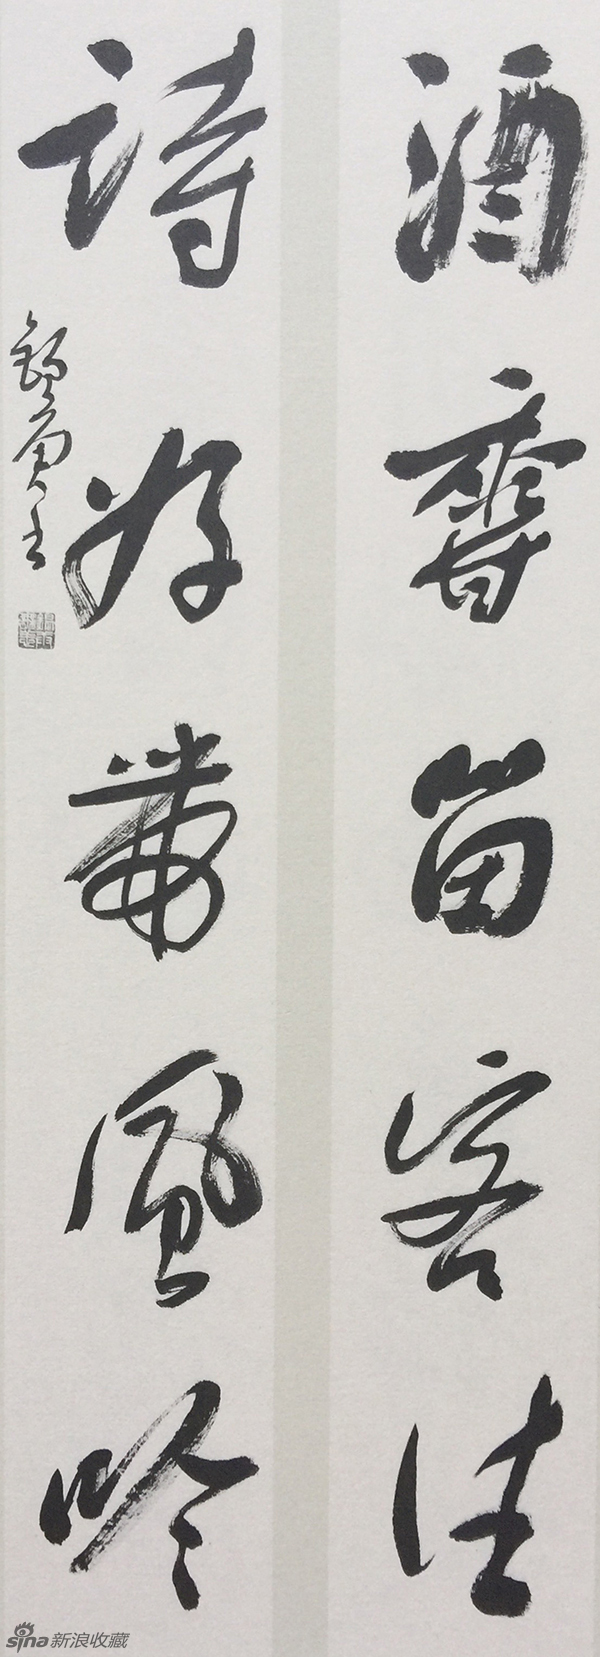 酒香留客住
詩好帶風吟
sina新浪收藏